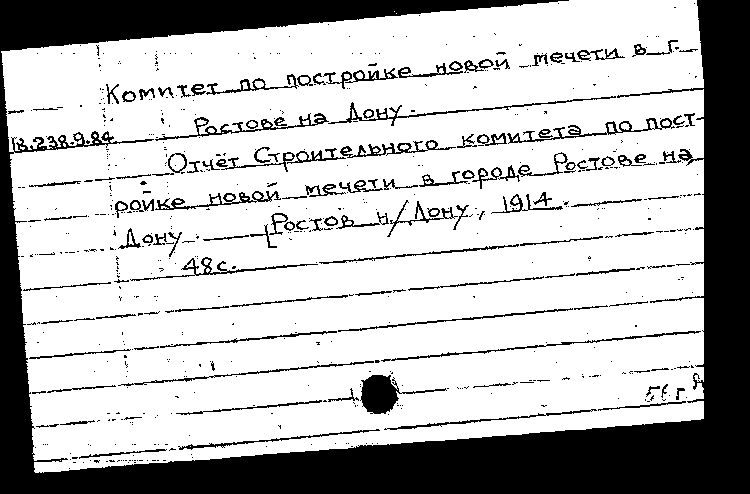 Комитет по постройке новой мечети в г.
Ростове на Дону.
18.238.9.84
Отчёт Строительного комитета по пост-
ройке новой мечети в городе Ростове на
Дону. — [Ростов н/Дону, 1914.
48с.
56 г.